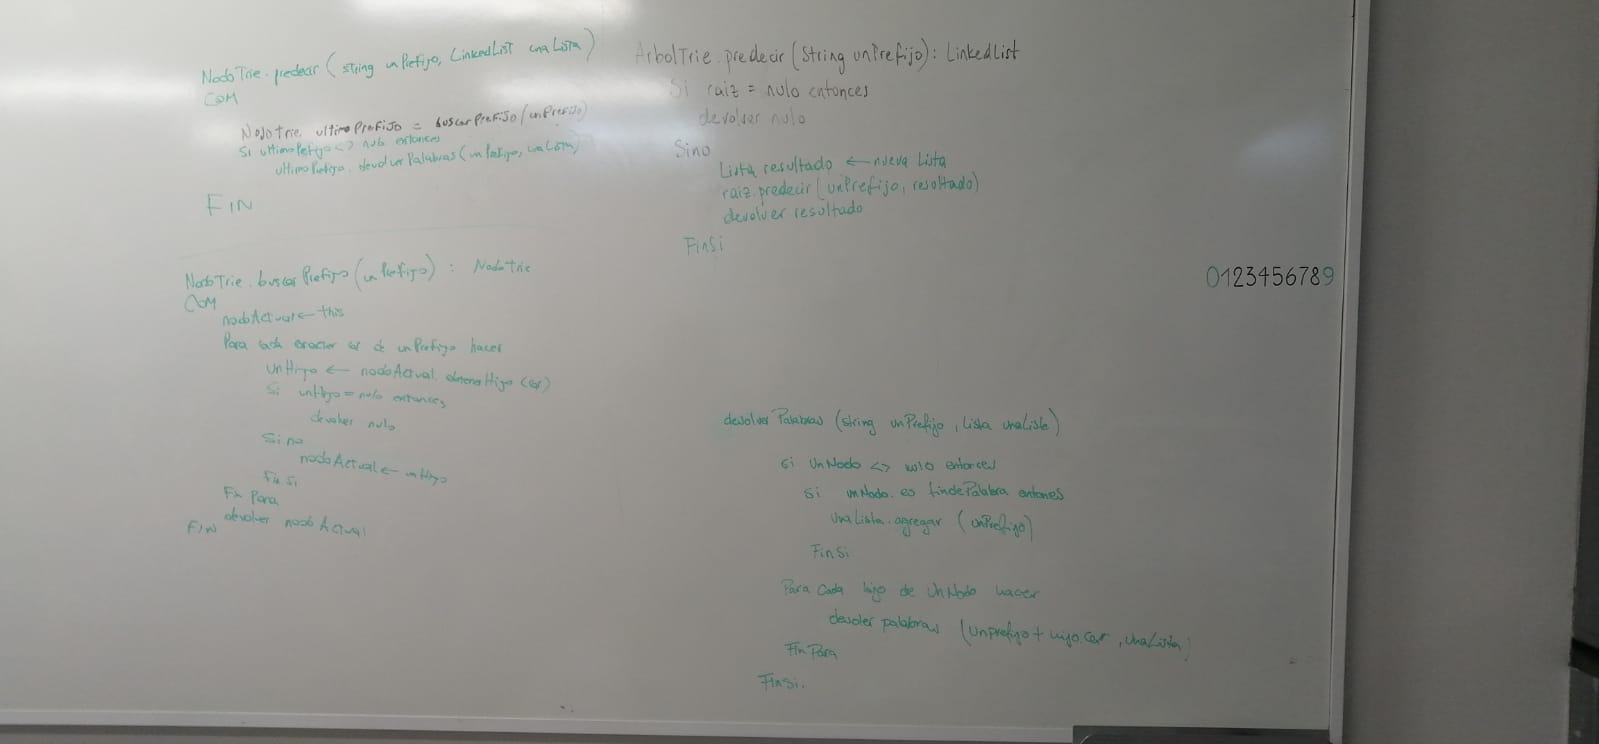 NodoTrie.predecir (string unPrefijo, LinkedList unaLista)
COM
NodoTrie ultimoPrefijo = buscarPrefijo(unPrefijo)
Si ultimoPrefijo <> nulo entonces
ultimoPrefijo.devolverPalabras(unPrefijo, unaLista)
FIN
NodoTrie.buscarPrefijo (unPrefijo) : NodoTrie
COM
nodoActual ← this
Para cada caracter car de unPrefijo hacer
unHijo ← nodoActual.obtenerHijo (car)
Si unHijo = nulo entonces
devolver nulo
Sino
nodoActual ← unHijo
Fin Si
Fin Para
devolver nodoActual
FIN
ArbolTrie.predecir (String unPrefijo): LinkedList
Si raiz = nulo entonces
devolver nulo
Sino
Lista resultado ← nueva Lista
raiz.predecir (unPrefijo, resultado)
devolver resultado
FinSi
0123456789
devolverPalabras (string unPrefijo, Lista unaLista)
Si unNodo <> nulo entonces
Si unNodo.es finde Palabra entonces
unaLista.agregar (unPrefijo)
FinSi
Para cada hijo de unNodo hacer
devolver palabras (unprefijo + hijo.car, unaLista)
FinPara
FinSi.